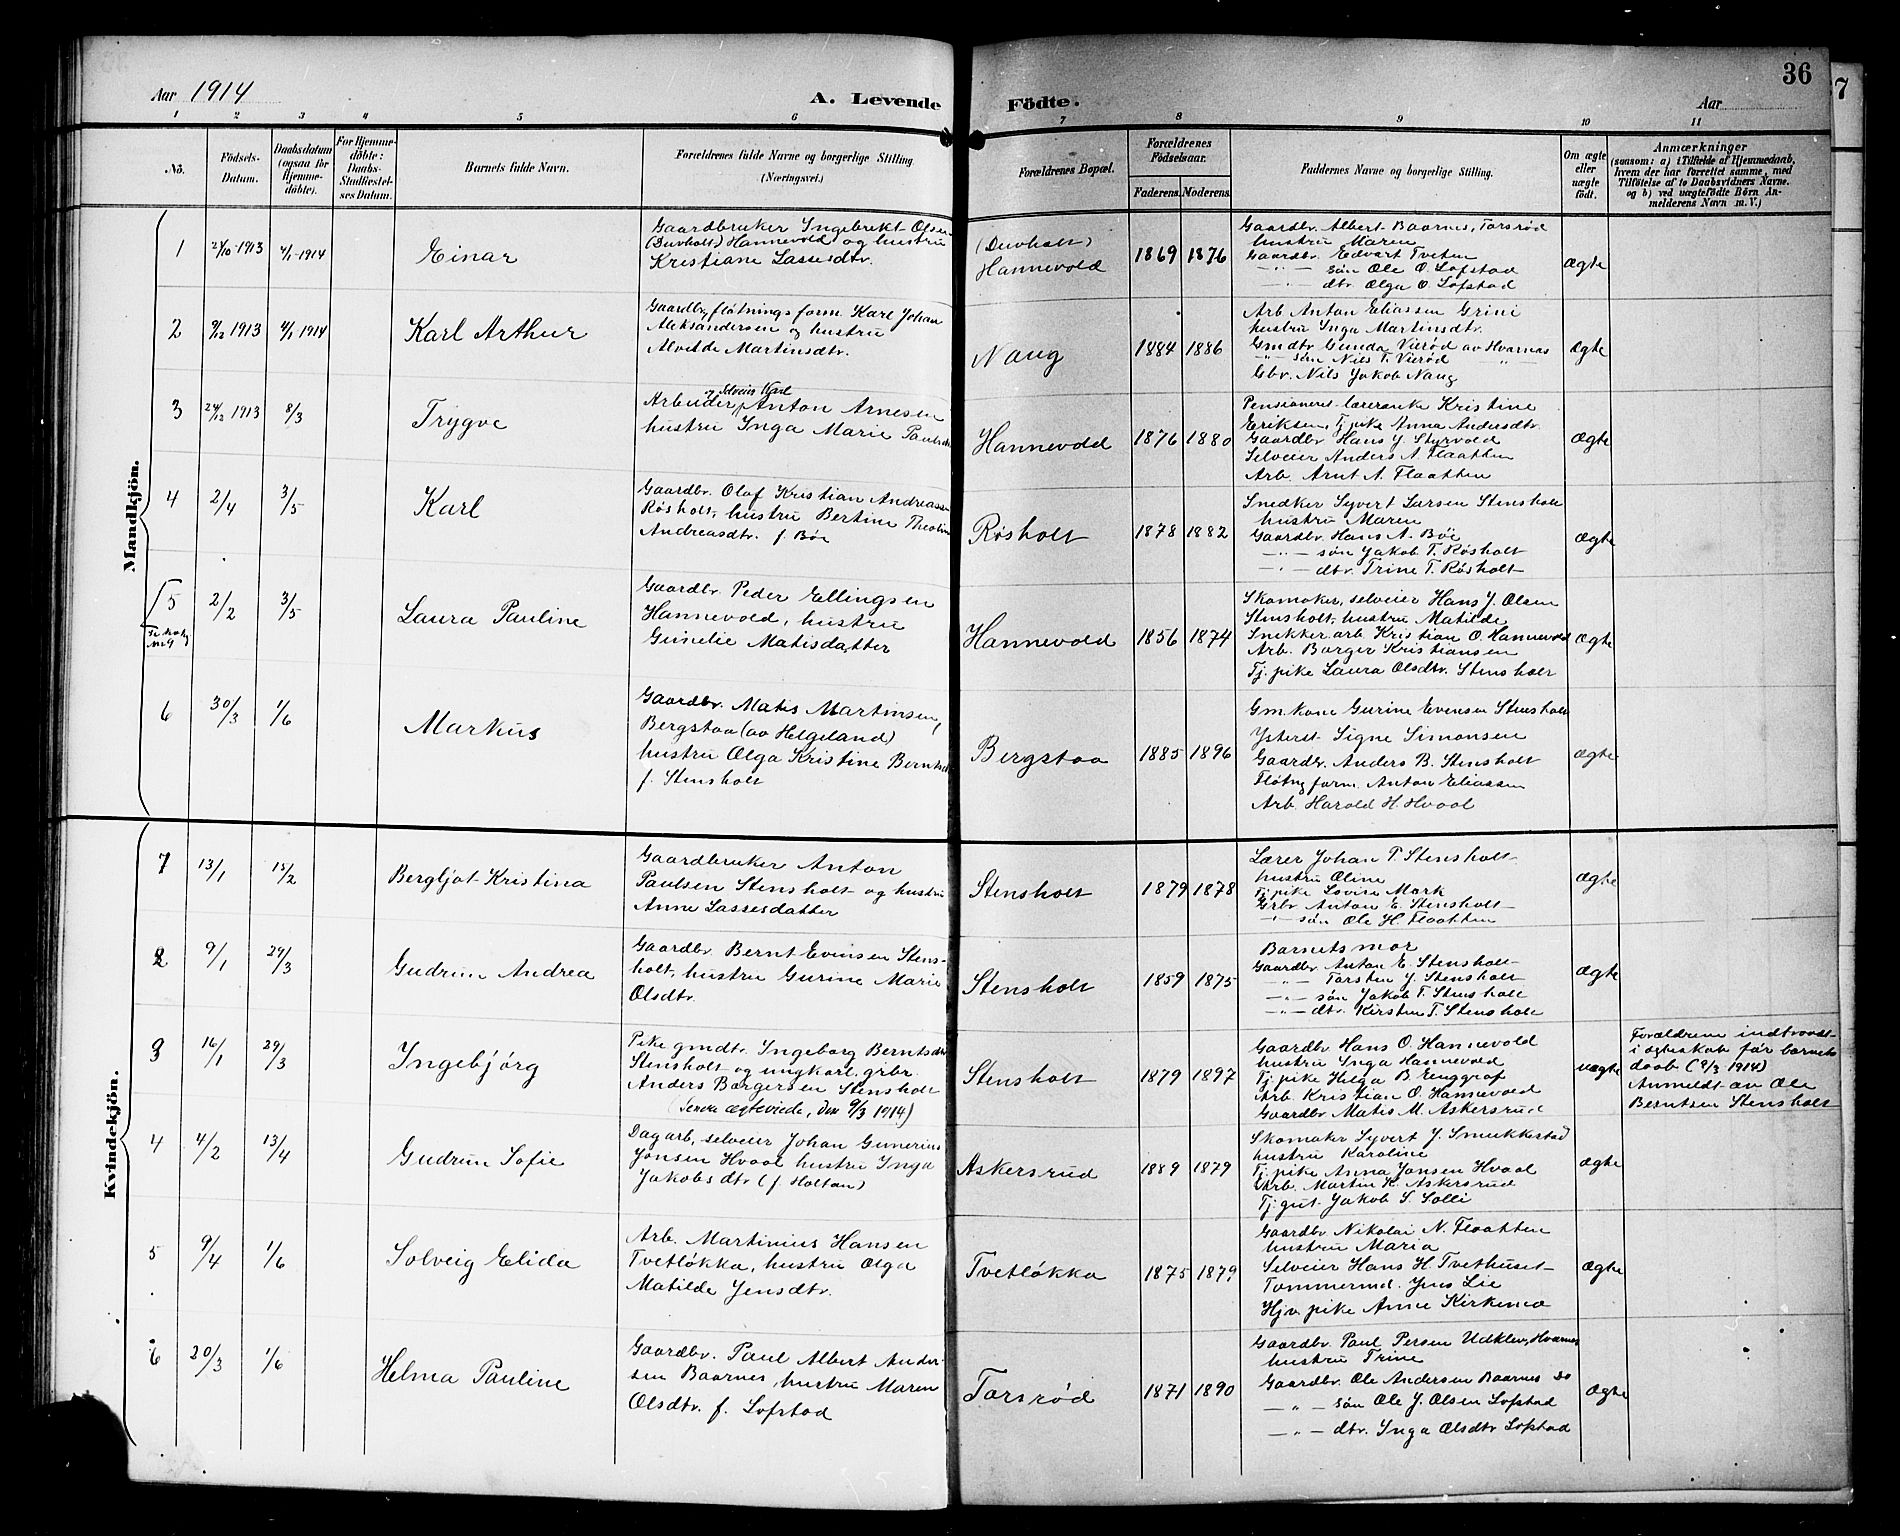 36
7
Aar 1914
A. Levende
Födte.
Aar
1 2 3 4 5 6 7 8 9 10 11
No.
Födsels-Datum.
Daabsdatum (ogsaa for Hjemmedöbte).
For Hjemmedöbte: Daabs-Stadfæstelses Datum.
Barnets fulde Navn.
Forældrenes fulde Navne og borgerlige Stilling.
(Næringsvei.)
Forældrenes Bopæl.
Forældrenes Födselsaar.
Faderens. Moderens.
Faddernes Navne og borgerlige Stilling.
Om ægte eller uægte födt.
Anmærkninger
(saasom: a) i Tilfælde af Hjemmedaab,
hvem der har forrettet samme, med
Tilföielse af to Daabsvidners Navne.
og b) ved uægtefödte Börn An-
melderens Navn m. V.)
Mandkjön.
1 27/10-1913 4/1-1914 Einar
Gaardbruker Ingebrekt Olsen
(Duvholt) Hannevold og hustru
Kristiane Lassesdtr.
(Duvholt)
Hannevold
1869 1876
Gaardbr. Albert Baarnes, Torsrød
hustru Maren
Gaardbr. Edvart Tveten
— " — søn Ole O. Lofstad
— " — dtr. Olga O. Lofstad
ægte
2 9/12 1913 4/1 1914 Karl Arthur
Gaardbr, fløtnings form. Karl Johan
Aleksandersen og hustru
Alvilde Martinsdtr.
Naug
1884 1886
Arb Anton Eliassen Grini
hustru Inga Martinsdtr.
Gmdtr Gunda Vierød av Hvarnes
— " — søn Nils T. Vierød "
Gbr. Nils Jakob Naug
ægte
3 24/12 1913 8/3 Trygve
og Selveier Karl
Arbeider, Anton Arnesen
hustru Inga Marie Paulsdtr
Hannevold
1876 1880
Pensioneret lærerenke Kristine
Eriksen, Tj pike Anna Andersdtr.
Gaardbr Hans J. Styrvold
Selveier Anders A. Flaatten
Arb. Arnt A. Flaatten
ægte
4 2/4 3/5 Karl
Gaardbr. Olaf Kristian Andreassen
Røsholt, hustru Bertine Theoline
Andreasdtr. f. Bøe
Røsholt
1878 1882
Snedker Syvert Larsen Stensholt
hustru Maren
Gaardbr. Hans A. Bøe
— " — søn Jakob T. Røsholt
— " — dtr. Trine T. Røsholt
ægte
5 2/2 3/5 Laura Pauline
Gaardbr Peder Ellingsen
Hannevold, hustru
Gunelie Matisdatter
Hannevold
1856 1874
Skomaker, selveier Hans J. Olsen
Stensholt, hustru Matilde
Snekker arb Kristian O. Hannevold
Arb. Borger Kristiansen
Tj. pike Laura Olsdtr. Stensholt
ægte
6 30/3 1/6 Markus
Gaardbr. Matis Martinsen,
Bergstaa (av Helgeland)
hustru Olga Kristine Berntsdtr
f. Stensholt
Bergstaa
1885 1896
Gm. kone Gurine Evensen Stensholt
Ysterst Signe Simonsen
Gaardbr. Anders B. Stensholt
Fløtng form. Anton Eliassen
Arb. Harald H. Hvaal
ægte
Kvindekjön.
7 13/1 15/2 Bergljot Kristina
Gaardbruker Anton
Paulsen Stensholt og hustru
Anne Lassesdatter
Stensholt
1879 1878
Lærer Johan P. Stensholt
hustru Eline
Tj. pike Lovise Mork
Grbr Anton E. Stensholt
— " — søn Ole H. Flaatten
ægte
2 9/1 29/3 Gudrun Andrea
Gaardbr. Bernt Evensen Stens-
holt, hustru Gurine Marie
Olsdtr.
Stensholt
1859 1875
Barnets mor
Gaardbr. Anton E. Stensholt
— " — Torsten J. Stensholt
— " — søn Jakob T. Stensholt
— " — dtr. Kirsten T. Stensholt
ægte
3 16/1 29/3 Ingebjørg
Pike gmdtr. Ingeborg Berntsdtr
Stensholt og ungkarl, grbr.
Anders Borgersen Stensholt
(senere ægteviede, den 9/3 1914)
Stensholt
1879 1897
Gaardbr Hans O. Hannevold
hustru Inga Hannevold
Tj. pike Helga B. Enggraf
Arb. Kristian O. Hannevold
Gaardbr Matis M. Askersrud
uægte
Forældrene indtraadt
i ægteskab før barnets
daab (9/3 1914)
Anmeldt av Ole
Berntsen Stensholt
4 4/2 13/4 Gudrun Sofie
Dagarb, selveier Johan Gunerius
Jonsen Hvaal hustru Inga
Jakobsdtr (f. Holtan)
Askersrud
1889 1879
Skomaker Syvert J. Smukkestad
hustru Karoline
Tj. pike Anna Jonsen Hvaal
Arb. Martin K. Askersrud
Tj. gut Jakob S. Solli
ægte
5 9/4 1/6 Solveig Elida
Arb. Martinius Hansen
Tvetløkka, hustru Olga
Matilde Jensdtr.
Tvetløkka
1875 1879
Gaardbr Nikolai N. Flaatten
hustru Maria
Selveier Hans H. Tvethuset
Tømmermd. Jens Lie
Hjv. pike Anne Kirkemo
ægte
6 20/3 1/6 Helma Pauline
Gaardbr. Paul Albert Ander-
sen Baarnes, hustru Maren
Olsdtr. f. Lofstad
Torsrød
1871 1890
Gaardbr. Paul Persen Udklev, Hvarnes
hustru Trine
Gaardbr. Ole Andersen Baarnes do
— " — søn Ole J. Olsen Lofstad
— " — dtr. Inga Olsdtr Lofstad
ægte